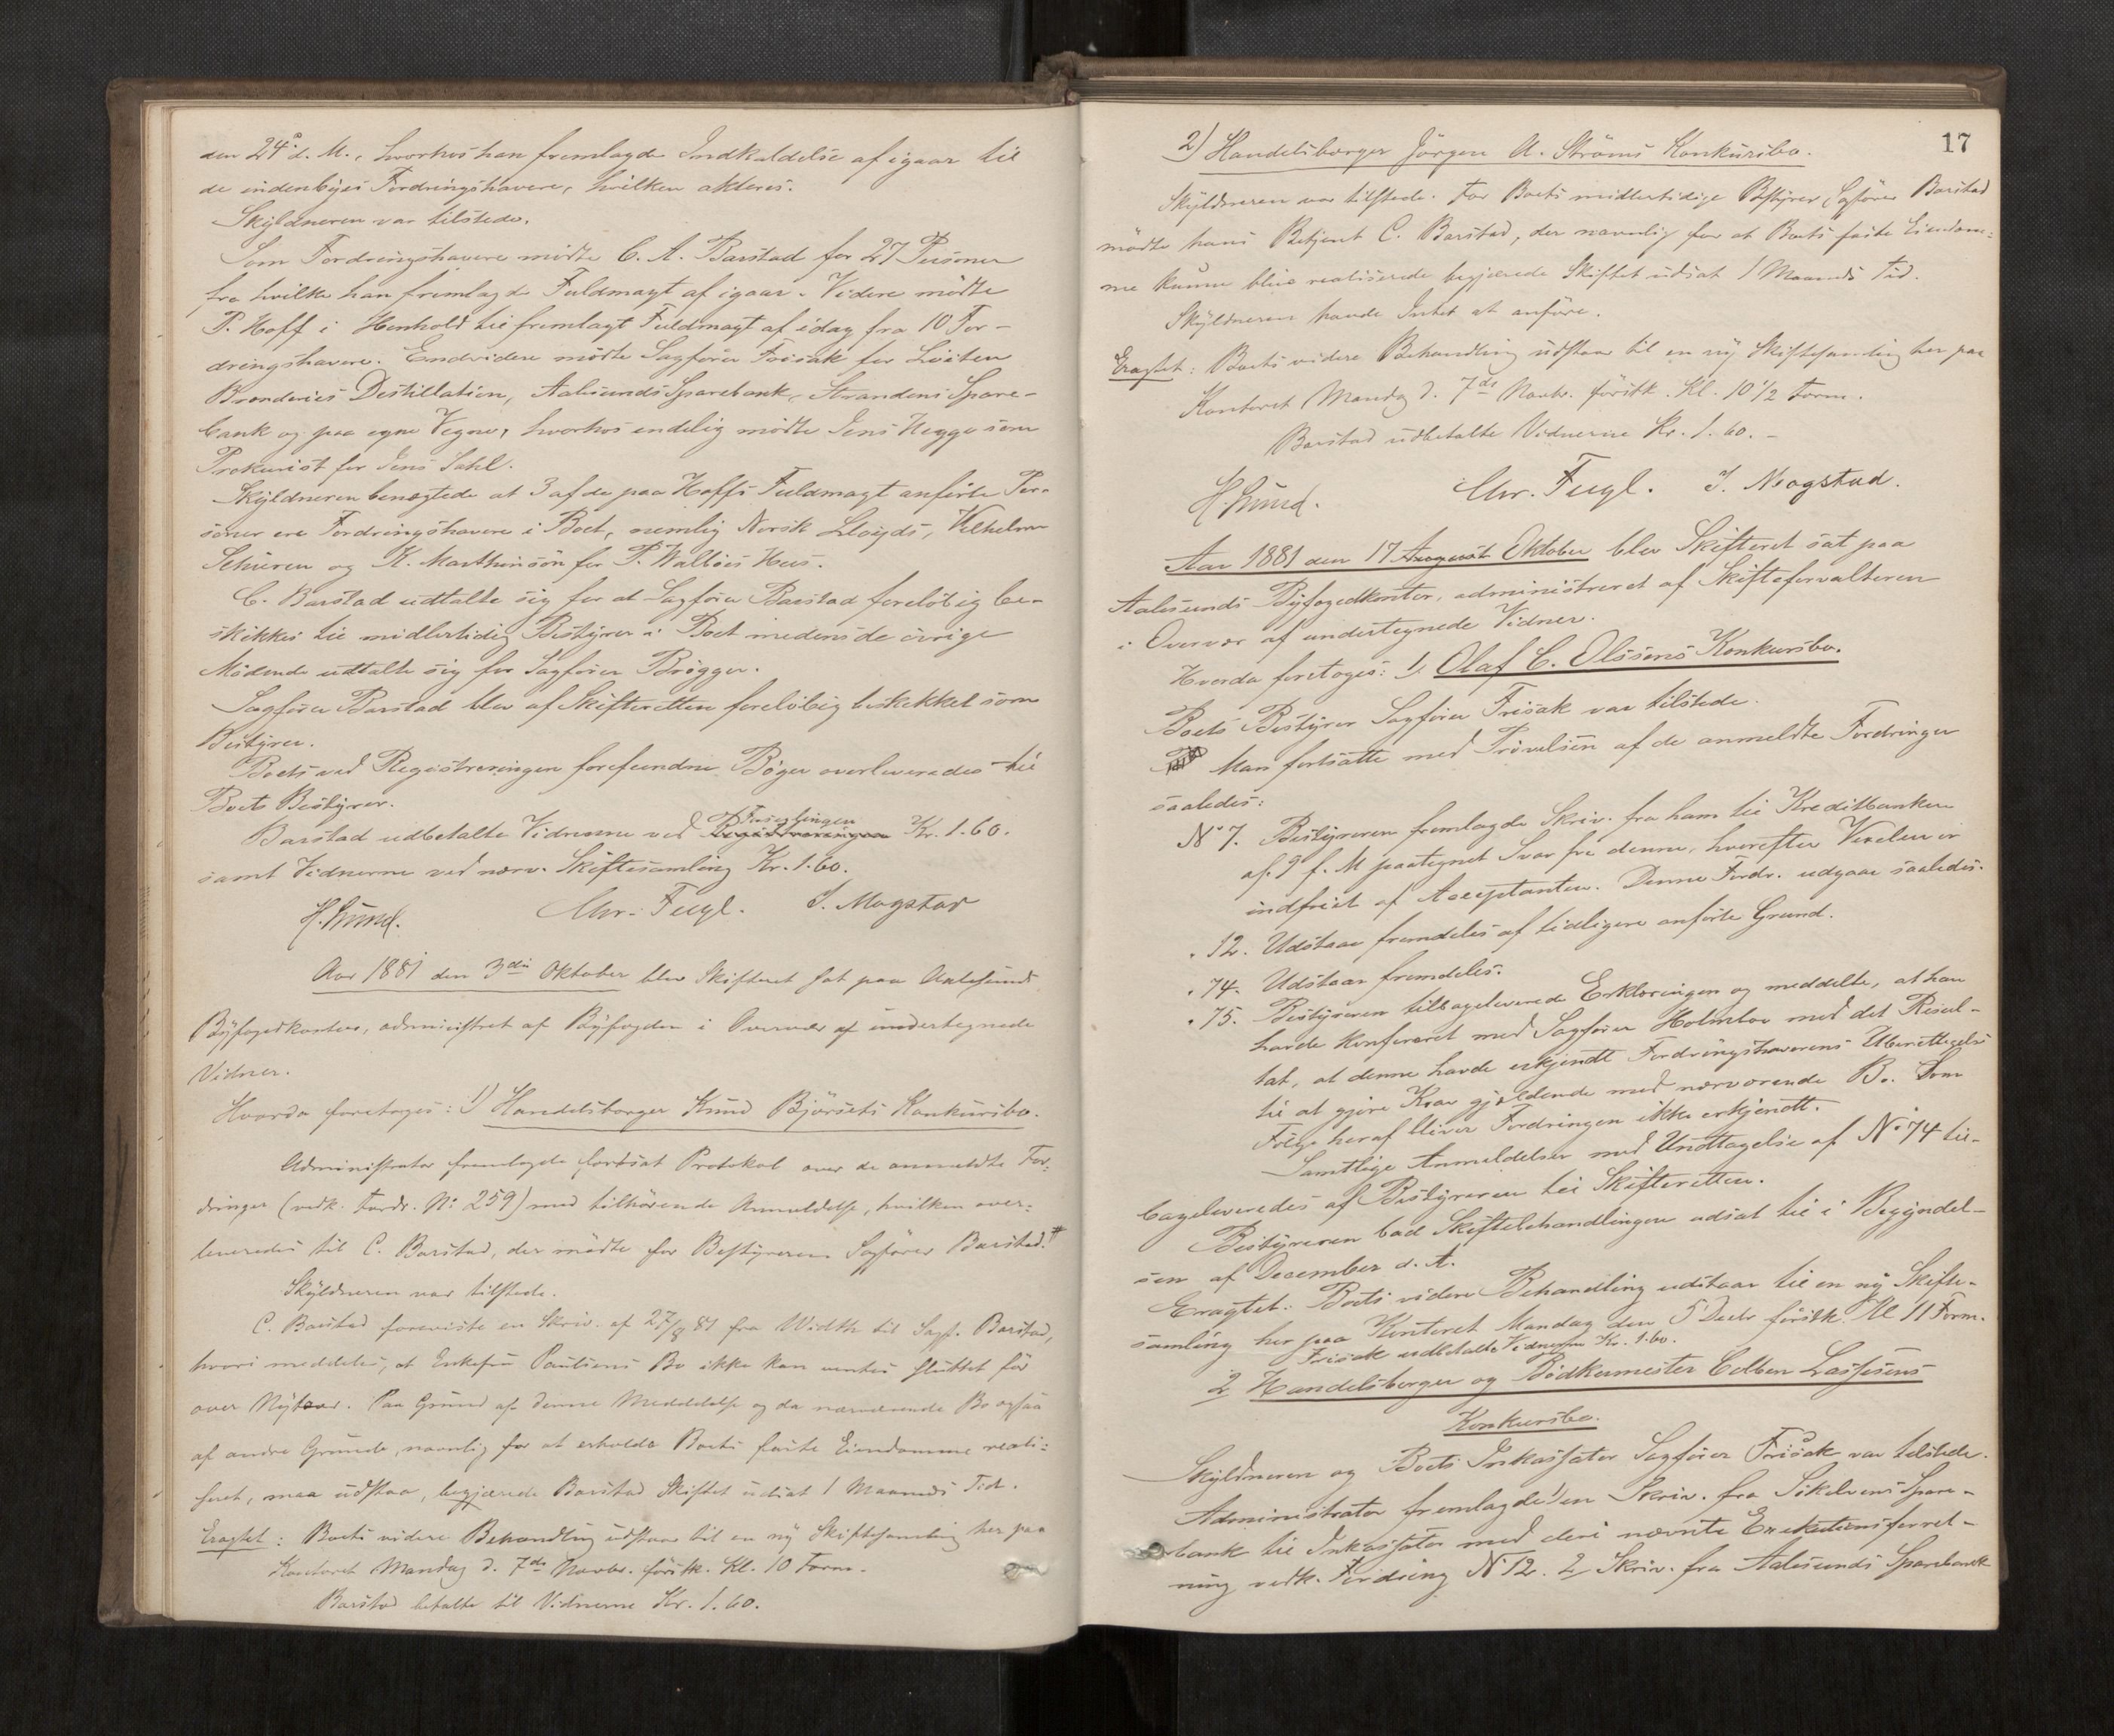 den 24de d. M., hvorhos han fremlagde Indkaldelse af igaar til
de indenbyes Fordringshavere, hvilken akteres.
Skyldneren var tilstede.
Som Fordringshavere mødte C. A. Barstad for 27 Personer
fra hvilke han fremlagde Fuldmagt af igaar. Videre mødte
P. Hoff i Henhold til fremlagt Fuldmagt af idag fra 10 For-
dringshavere. Endvidere mødte Sagfører Frisak for Løiten
Brænderies Destillation, Aalesunds Sparebank, Strandens Spare-
bank og paa egne Vegne, hvorhos endelig mødte Jens Hegge som
Prokurist for Jens Dahl.
Skyldneren benægtede at 3 af de paa Hoffs Fuldmagt anførte Per-
soner ere Fordringshavere i Boet, nemlig Norsk Lloyds, Vilhelm
Schüren og K. Marthinsøn for P. Walbøes Hus.
C. Barstad udtalte sig for at Sagfører Barstad foreløbig be-
skikkes til midlertidig Bestyrer i Boet medens de øvrige
Mødende udtalte sig for Sagfører Brøgger.
Sagfører Barstad blev af Skifteretten foreløbig beskikket som
Bestyrer.
Boets ved Registreringen forefundne Bøger overleveredes til
Boets Bestyrer.
Barstad udbetalte Vidnerne ved Registreringen Forseglingen Kr. 1.60.
samt Vidnerne ved nærv. Skiftesamling Kr. 1.60.
H. Lund. Chr. Fugl. I. Mogstad
Aar 1881 den 3die Oktober blev Skifteret sat paa Aalesunds
Byfogedkontor, administreret af Byfogden i Overvær af undertegnede
Vidner.
Hvorda foretoges: 1) Handelsborger Knud Bjørsets Konkursbo.
Administrator fremlagde fortsat Protokol over de anmeldte For-
dringer (vedk. Fordr. No 259) med tilhørende Anmeldelse, hvilken over-
leveredes til C. Barstad, der mødte for Bestyreren Sagfører Barstad. #
Skyldneren var tilstede.
C. Barstad foreviste en Skriv. af 27/8 81 fra Width til Sagf. Barstad,
hvori meddeles, at Enkefru Paulsens Bo ikke kan ventes sluttet før
over Nytaar. Paa Grund af denne Meddelelse og da nærværende Bo ogsaa
af andre Grunde, navnlig for at erholde Boets faste Eiendomme reali-
seret, maa udstaa, begjærede Barstad Skiftet udsat 1 Maaneds Tid.
Eragtet: Boets videre Behandling udstaar til en ny Skiftesamling her paa
Kontoret Mandag d. 7de Novbr. førstk. Kl. 10 Form.
Barstad betalte til Vidnerne Kr. 1.60.
17
2) Handelsborger Jørgen A. Strøms Konkursbo.
Skyldneren var tilstede. For Boets midlertidige Bestyrer Sagfører Barstad
mødte hans Betjent C. Barstad, der navnlig for at Boets faste Eiendom-
me kunne blive realiserede begjærede Skiftet udsat 1 Maaneds Tid.
Skyldneren havde Intet at anføre.
Eragtet: Boets videre Behandling udstaar til en ny Skiftesamling her paa
Kontoret Mandag d. 7de Novbr. førstk. Kl. 10 1/2 Form.
Barstad udbetalte Vidnerne Kr. 1.60.-
H. Lund. Chr. Fugl. I. Mogstad.
Aar 1881 den 17 August Oktober blev Skifteret sat paa
Aalesunds Byfogedkontor, administreret af Skifteforvalteren
i Overvær af undertegnede Vidner.
Hvorda foretoges: 1. Olaf C. Olssens Konkursbo.
Boets Bestyrer Sagfører Frisak var tilstede.
Man fortsatte med Prøvelsen af de anmeldte Fordringer
saaledes:
No 7. Bestyreren fremlagde Skriv. fra ham til Kreditbanken
af 9 f. M paategnet Svar fra denne, hvorefter Vexelen er
indfriet af Acceptanten. Denne Fordr. udgaar saaledes.
" 12. Udstaar fremdeles af tidligere anførte Grund.
" 74. Udstaar fremdeles.
" 75. Bestyreren tilbageleverede Erklæringen og meddelte, at han
havde konfereret med Sagfører Holmboe med det Resul-
tat, at denne havde erkjendt Fordringshaverens Uberettigelse
til at gjøre Krav gjældende mod nærværende Bo. Som
Følge heraf bliver Fordringen ikke erkjendt.
Samtlige Anmeldelser med Undtagelse af No 74 til-
bageleveredes af Bestyreren til Skifteretten.
Bestyreren bad Skiftebehandlingen udsat til i Begyndel-
sen af December d. A.
Eragtet: Boets videre Behandling udstaar til en ny Skifte-
samling her paa Kontoret Mandag den 5 Decbr førstk. Kl 11 Form.
Frisak udbetalte Vidnerne Kr. 1.60.
2 Handelsborger og Bødkermester Colben Lassesens
Konkursbo.
Skyldneren og Boets Inkassator Sagfører Frisak var tilstede.
Administrator fremlagde 1 en Skriv. fra Sökelvens Spare-
bank til Inkassator med deri nævnte Exekutionsforret-
ning vedk. Fordring No 12. 2 Skriv. fra Aalesunds Sparebank